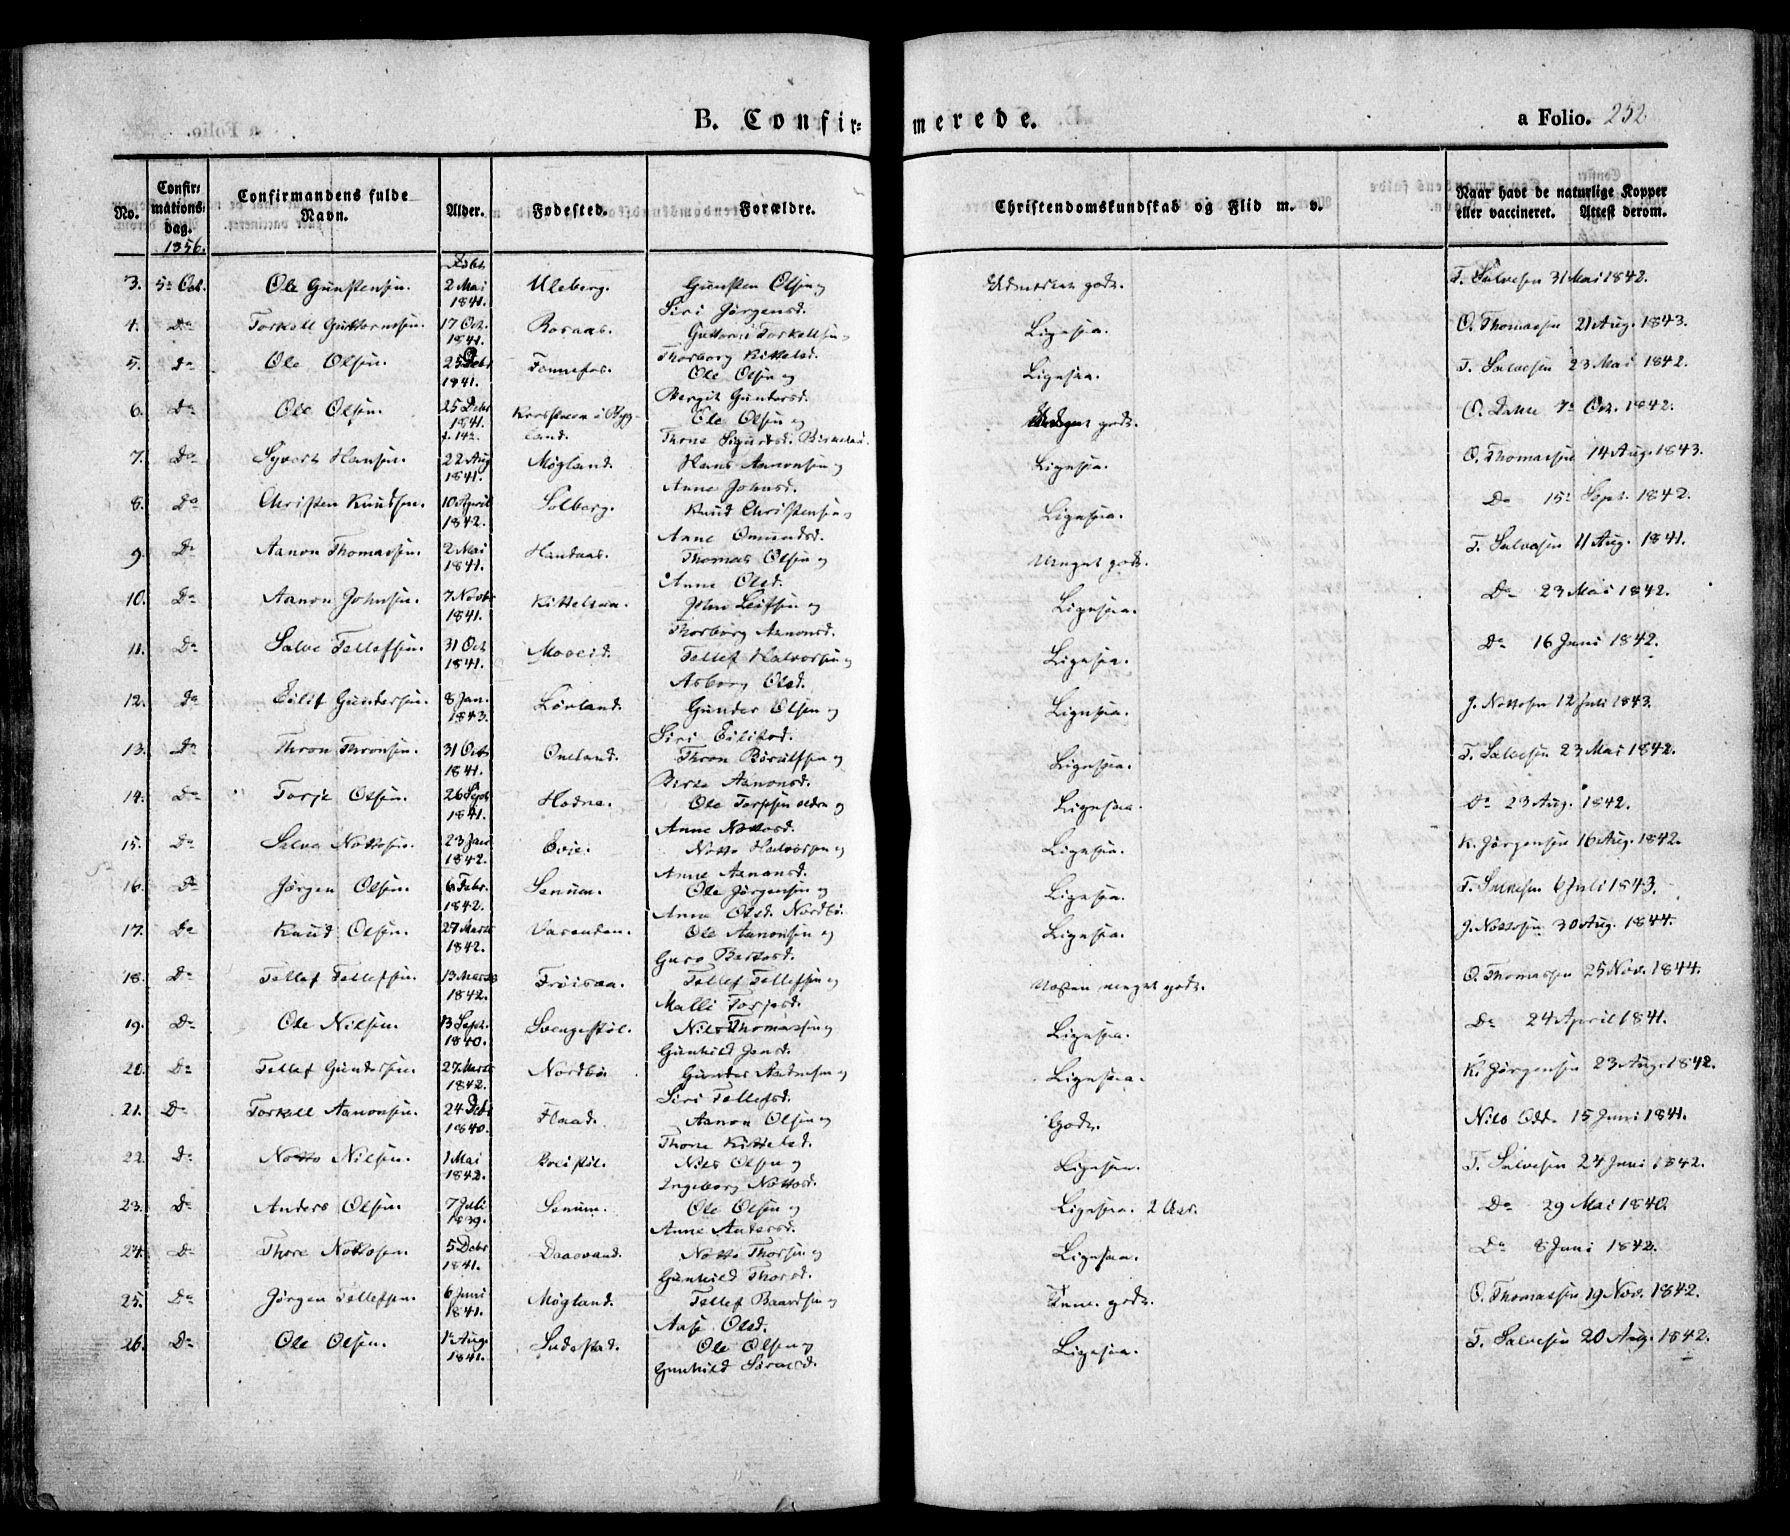 B. Confir= merede. a Folio. 252
No. Confir= mations= dag. Confirmandens fulde Navn. Alder. Fødested. Forældre. Christendomskundskab og Flid m. v. Naar havt de naturlige Kopper eller vaccineret. Attest derom.
1856.
3. 5te Oct. Ole Gunstensen. 2 Mai 1841. Uleberg. Gunsten Olsen og Siri Jørgensd. Udmerket godt. T. Salvesen 31 Mai 1842.
4. Do Torkell Guttormsen. 17 Oct. 1841. Rosaas. Guttorm Torkellsen, Thorborg Kittelsd. Ligesaa. O. Thomassen 21 Aug. 1843.
5. Do Ole Olsen. 25 Debr 1841. Fennefos. Ole Olsen og Bergit Gundersd. Ligesaa. T. Salvesen 23 Mai 1842.
6. Do Ole Olsen. 25 Debr 1841. f. 142. i Byg= land. Ole Olsen og Thone Sigurdsd. Birkeland. Meget godt. O. Oct. 1842.
7. Do Syvert Hansen. 22 Aug 1841. Møgland. Hans Aanonsen og Anne Johnsd. Ligesaa. O. Thomassen 14 Aug. 1843.
8. Do Christen Knudsen. 10 April 1842. Solberg. Knud Christensen, Anne Omundsd. Ligesaa. Do 15 Sept. 1842.
9. Do Aanon Thomassen. 2 Mai 1841. Hundaas. Thomas Olsen og Anne Olsd. Meget godt. T. Salvesen 11 Aug. 1841.
10. Do Aanon Johnsen. 7 Novbr 1841. Kittelsaa. John Leifsen og Thorborg Aanonsd. Ligesaa. Do 23 Mai 1842.
11. Do Salve Tellefsen. 31 Oct 1841. Moseid. Tellef Halvorsen og Asborg Olsd. Ligesaa. Do 16 Juni 1842.
12. Do Eilif Gundersen. 8 Jan. 1843. Lørland. Gunder Olsen og Siri Eilifsd. Ligesaa. J. Nottosen 12 Juli 1843.
13. Do Thron Thronsen. 31 Oct 1841. Oneland. Thron Børulfsen og Birte Aanonsd. Ligesaa. T. Salvesen 23 Mai 1842.
14. Do Torje Olsen. 26 Sept 1841. Hodne. Ole Torjesen ældre og Anne Nottosd. Ligesaa. Do 23 Aug. 1842.
15. Do Salve Nottosen. 23 Jan 1842. Evje. Notto Halvorsen og Anne Aanonsd. Ligesaa. K. Jørgensen 16 Aug. 1842.
16. Do Jørgen Olsen. 6 Febr. 1842. Senum. Ole Jørgensen og Anne Olsd. Nordbø. Ligesaa. T. Salvesen 6 Juli 1843.
17. Do Knud Olsen. 27 Marts 1842. Vasenden. Ole Aanonsen og Guro Bertosd. Ligesaa. J. Nottosen 30 Aug. 1844.
18. Do Tellef Tellefsen. 13 Marts 1842. Frøisaa. Tellef Tellefsen og Malli Torjesd. Næsten meget godt. O. Thomassen 25 Nov. 1844.
19. Do Ole Nilsen. 13 Sept. 1840. Svengestøl. Nils Thomassen og Gunhild Jensd. Ligesaa. Do 24 April 1841.
20. Do Tellef Gundersen. 27 Marts 1842. Nordbø. Gunder Aadnesen og Siri Tellefsd. Ligesaa. K. Jørgensen 23 Aug. 1842.
21. Do Torkell Aanonsen. 24 Debr 1840. Flaad. Aanon Olsen og Thone Kittelsd. Godt. Nils Odd. 15 Juni 1841.
22. Do Notto Nilsen. 1 Mai 1842. Breistøl. Nils Olsen og Ingeborg Nottosd. Ligesaa. T. Salvesen 24 Juni 1842.
23. Do Anders Olsen. 7 Juli 1839. Senum. Ole Olsen og Anne Andersd. Ligesaa. Do 29 Mai 1840.
24. Do Thore Nottosen. 5 Debr 1841. Daasvand. Notto Thorsen og Gunhild Thorsd. Ligesaa. Do 8 Juni 1842.
25. Do Jørgen Tellefsen. 6 Juni 1841. Møgland. Tellef Baardsen og Aase Olsd. godt. O. Thomassen 19 Nov. 1842.
26. Do Ole Olsen. 1te Aug. 1841. Ole Olsen og Gunhild Ligesaa. T. Salvesen 20 Aug. 1842.